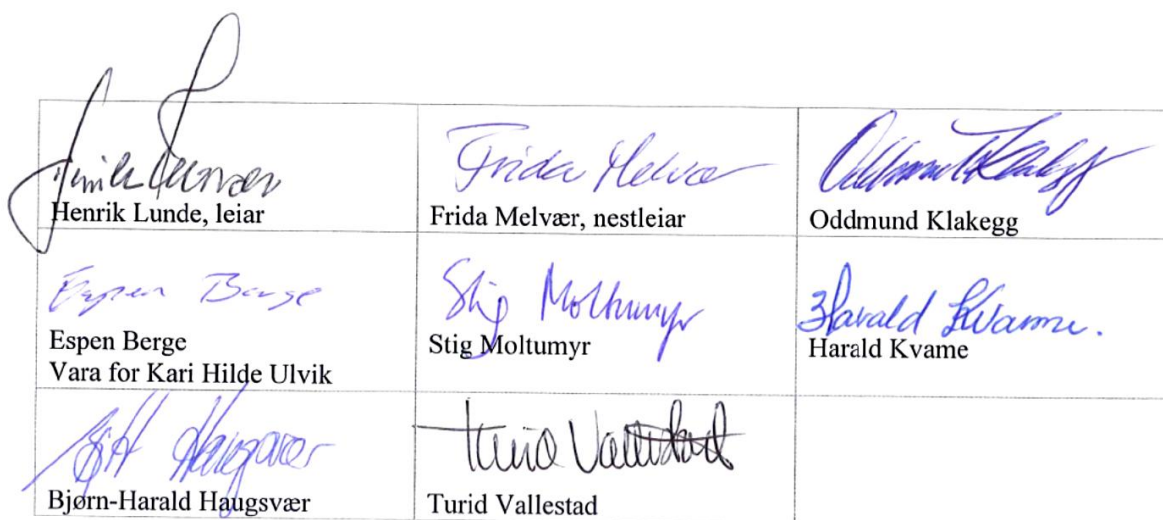 Frida Melvær
Henrik Lunde, leiar
Frida Melvær, nestleiar
Oddmund Klakegg
Espen Berge
Stig Moltumyr
Harald Kvame.
Espen Berge
Vara for Kari Hilde Ulvik
Stig Moltumyr
Harald Kvame
Haugsvær
Turid Vallestad
Bjørn-Harald Haugsvær
Turid Vallestad